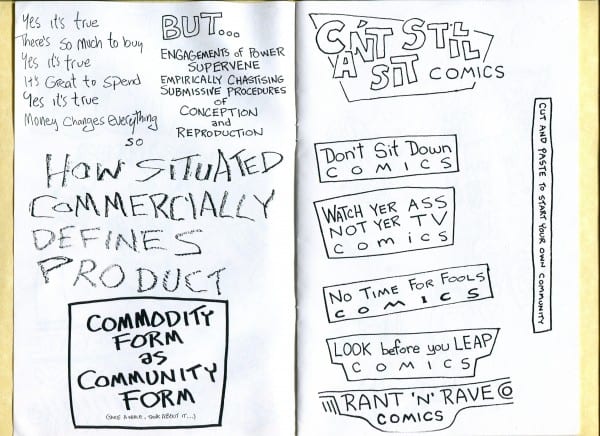 Yes it's true
There's so much to buy
Yes it's true
It's Great to Spend
Yes it's true
Money Changes Everything
so
BUT...
ENGAGEMENTS OF POWER
SUPERVENE
EMPIRICALLY CHASTISING
SUBMISSIVE PROCEDURES
OF
CONCEPTION
and
REPRODUCTION
HOW SITUATED
COMMERCIALLY
DEFINES
PRODUCT
COMMODITY
FORM
as
COMMUNITY
FORM
(TAKE A WHILE, THINK ABOUT IT...)
CAN'T STILL
SIT COMICS
Don't Sit Down
COMICS
WATCH YER ASS
NOT YER TV
comics
NO TIME FOR FOOLS
COMICS
LOOK before you LEAP
COMICS
RANT 'N' RAVE CO
COMICS
CUT AND PASTE TO START YOUR OWN COMMUNITY